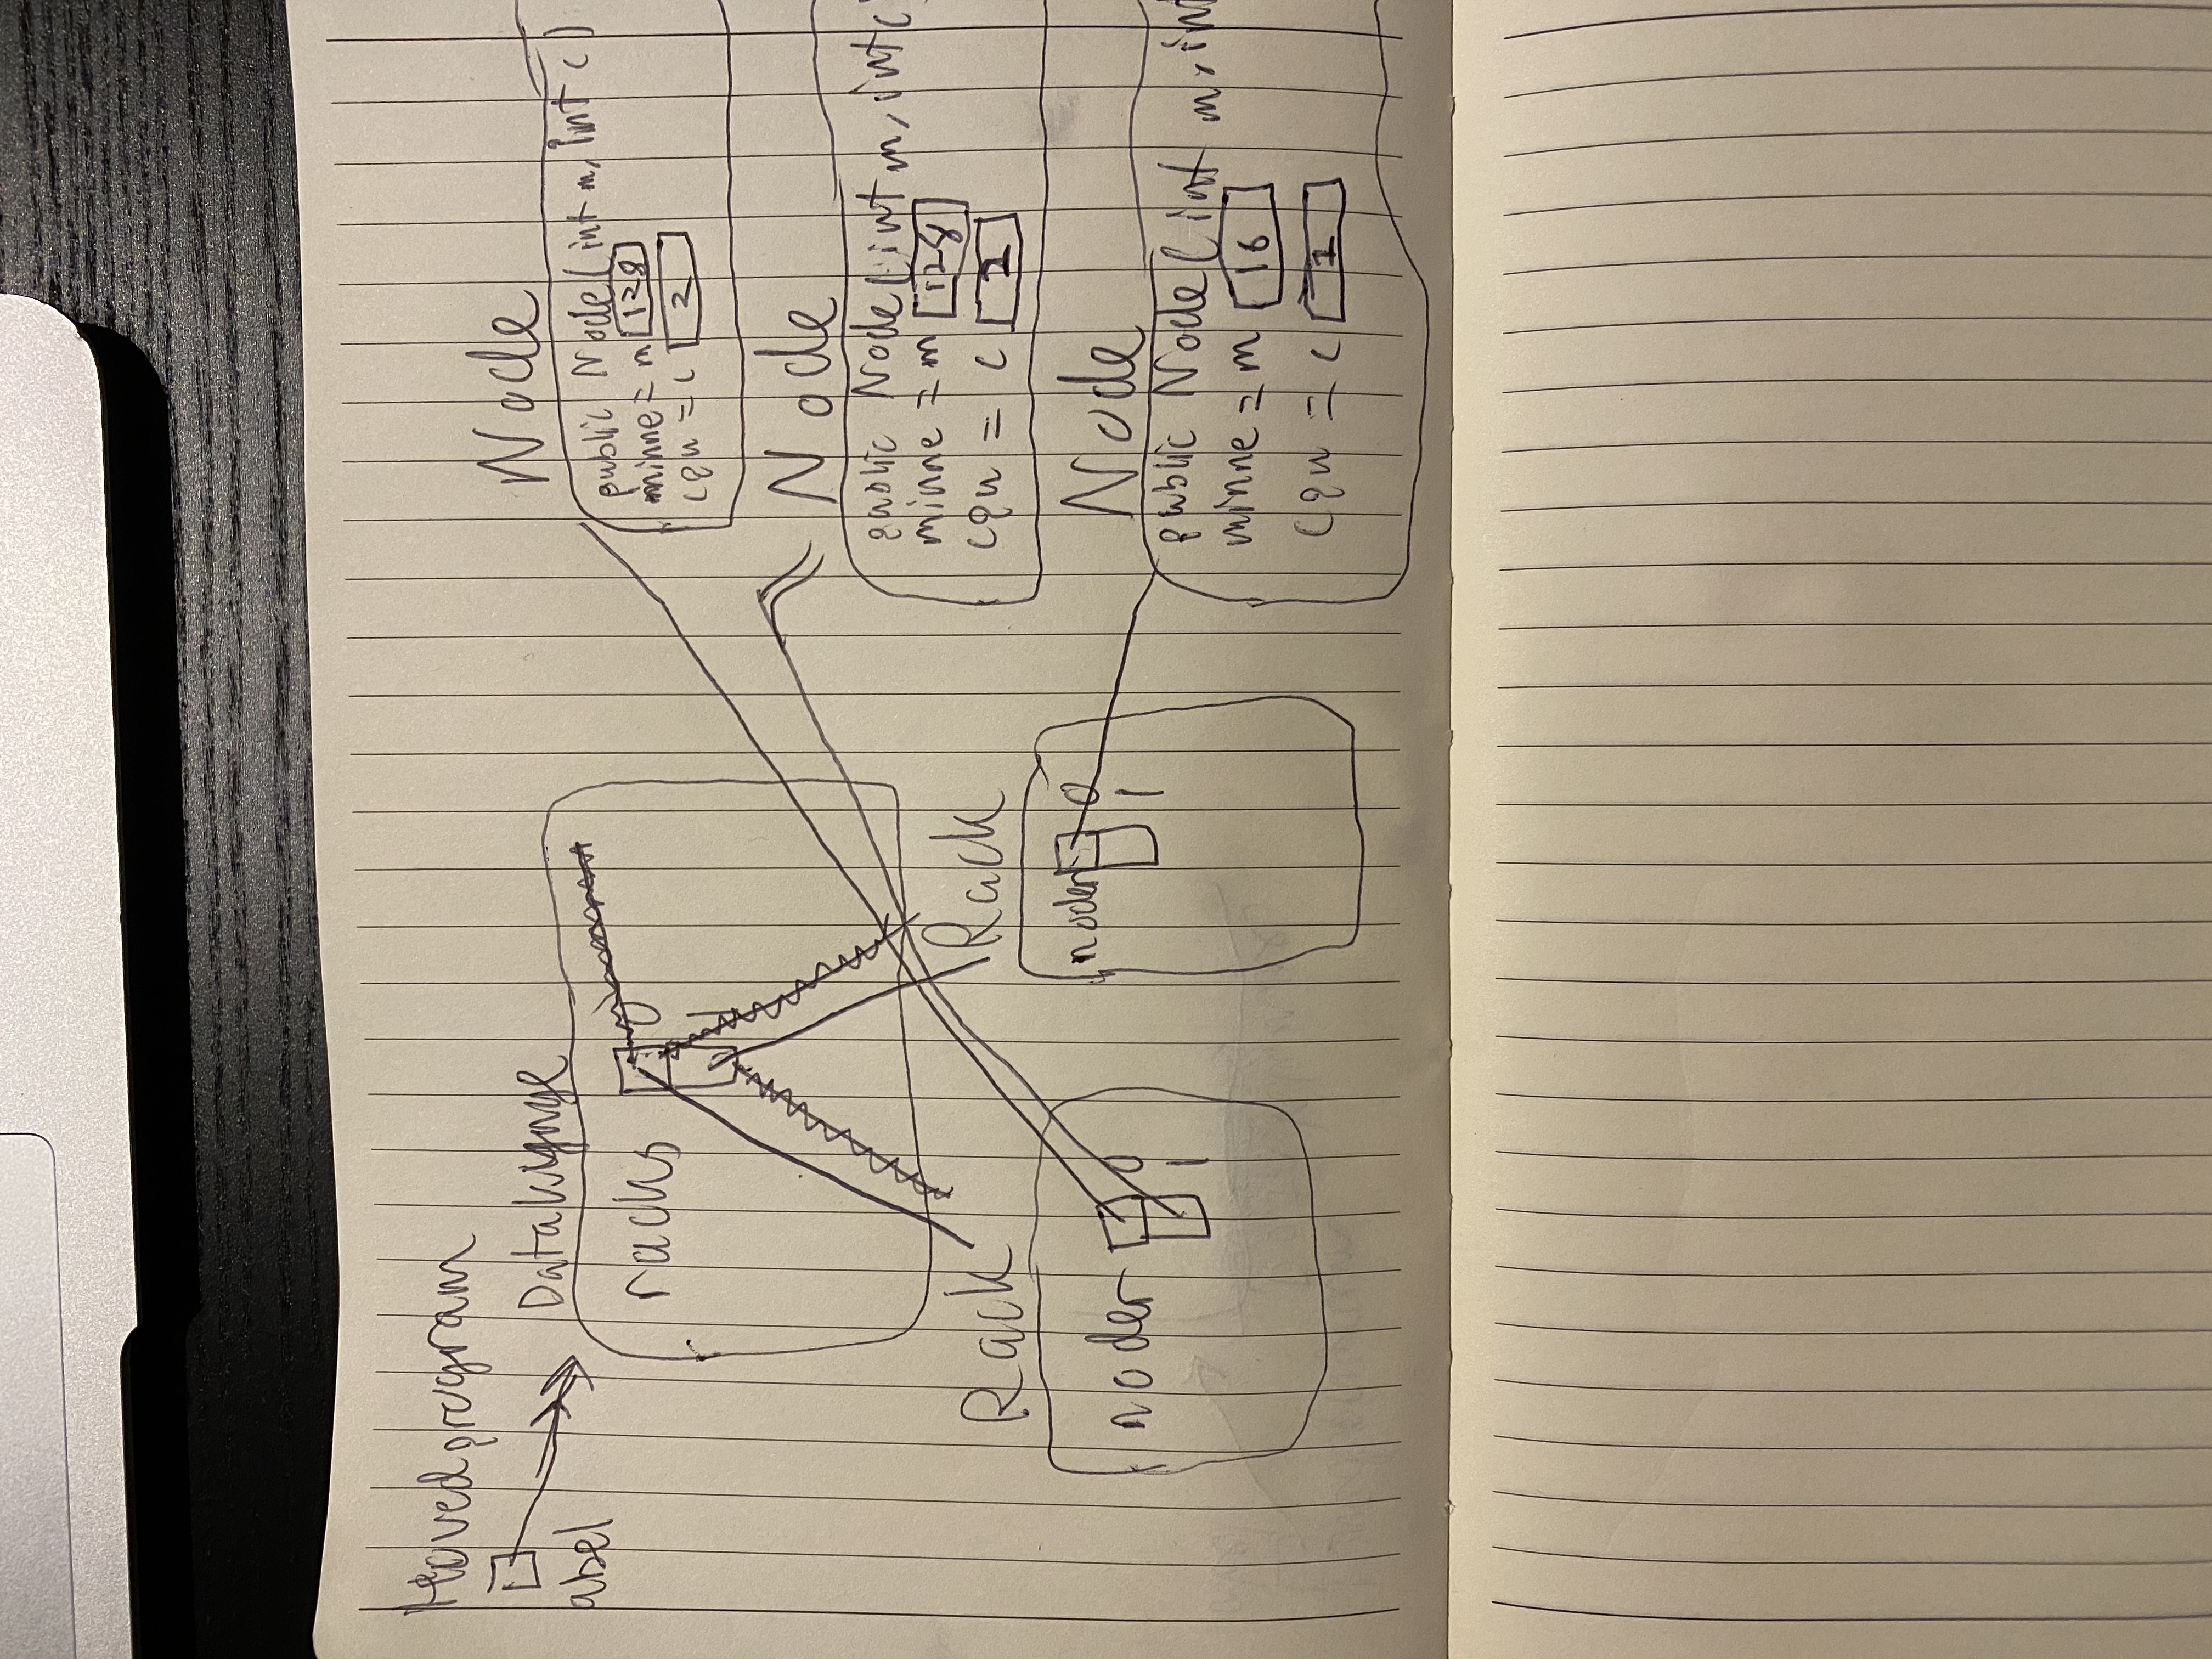 Hovedprogram
abel
Dataklynge
racks
0
1
Rack
noder
0
1
Rack
noder
0
1
Node
public Node(int m, int c)
minne = m 128
cpu = c 2
Node
public Node(int m, int c
minne = m 128
cpu = c
Node
public Node(int m, int
minne = m 16
cpu = c 1